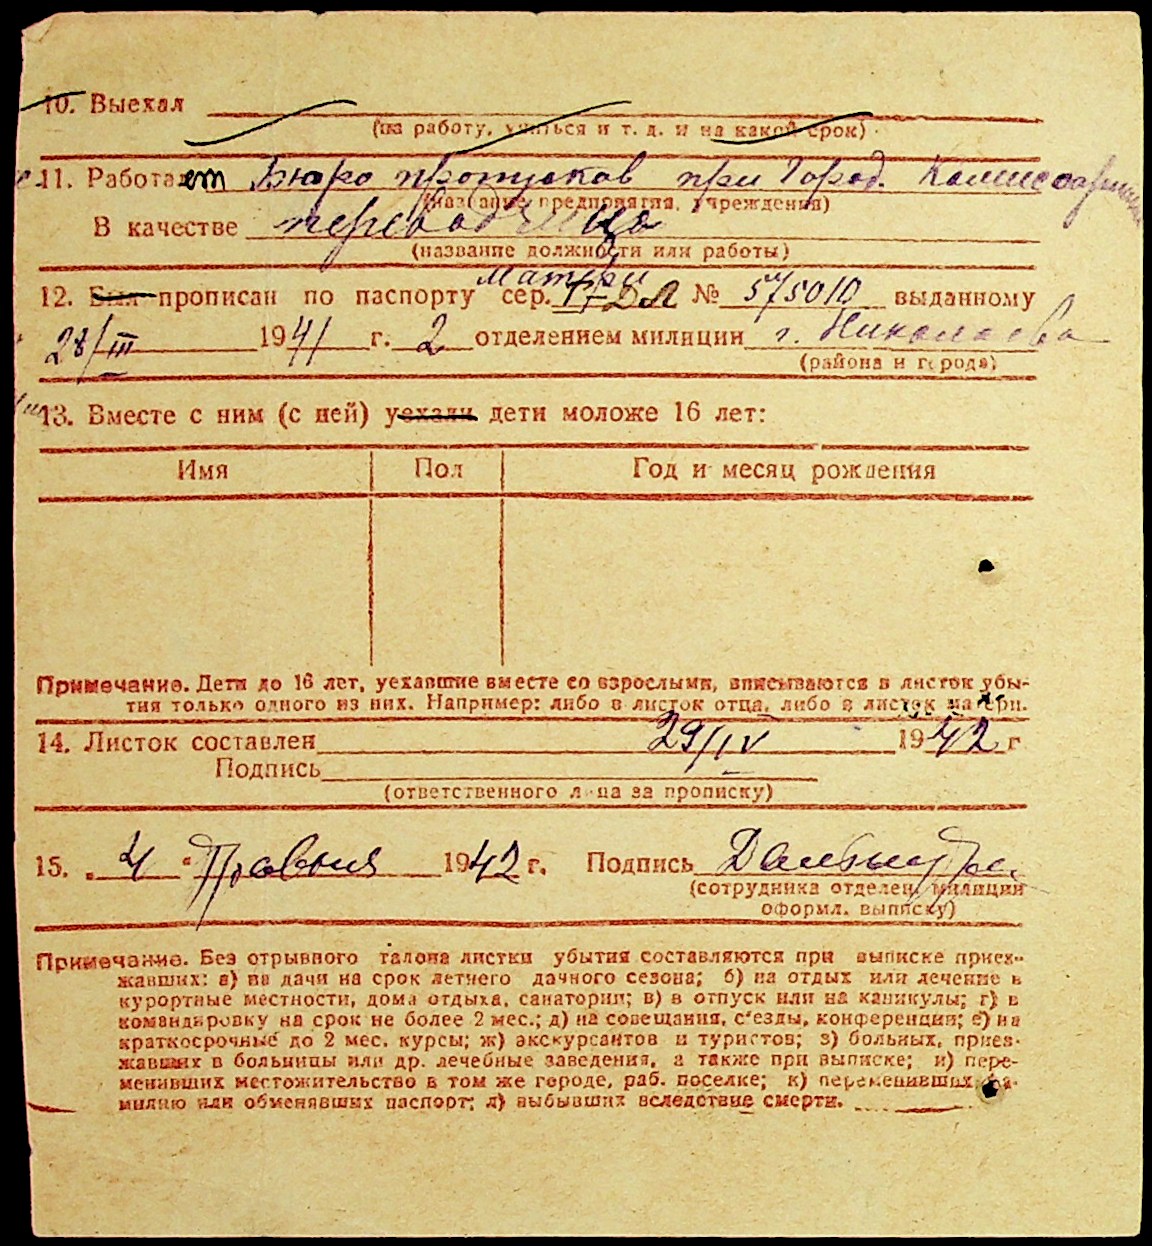 10. Выехал
(на работу, учиться и т. д. и на какой срок)
11. Работает Бюро пропусков при Город. Комиссариате
(название предприятия, учреждения)
В качестве переводчица
(название должности или работы)
матери
12. Был прописан по паспорту сер. № 575010 выданному
28/III 1941 г. 2 отделением милиции г. Николаева
(района и города)
13. Вместе с ним (с ней) уехали дети моложе 16 лет:
Имя Пол Год и месяц рождения
Примечание. Дети до 16 лет, уехавшие вместе со взрослыми, вписываются в листок убы-
тия только одного из них. Например: либо в листок отца, либо в листок матери.
14. Листок составлен 29/IV 1942 г
Подпись
(ответственного лица за прописку)
15. „4“ Травня 1942 г. Подпись
(сотрудника отделен. милиции
оформл. выписку)
Примечание. Без отрывного талона листки убытия составляются при выписке приез-
жавших: а) на дачи на срок летнего дачного сезона; б) на отдых или лечение в
курортные местности, дома отдыха, санатории; в) в отпуск или на каникулы; г) в
командировку на срок не более 2 мес.; д) на совещания, с'езды, конференции; е) на
краткосрочные до 2 мес. курсы; ж) экскурсантов и туристов; з) больных, приез-
жавших в больницы или др. лечебные заведения, а также при выписке; и) пере-
менивших местожительство в том же городе, раб. поселке; к) переменивших фа-
милию или обменявших паспорт; л) выбывших вследствие смерти.